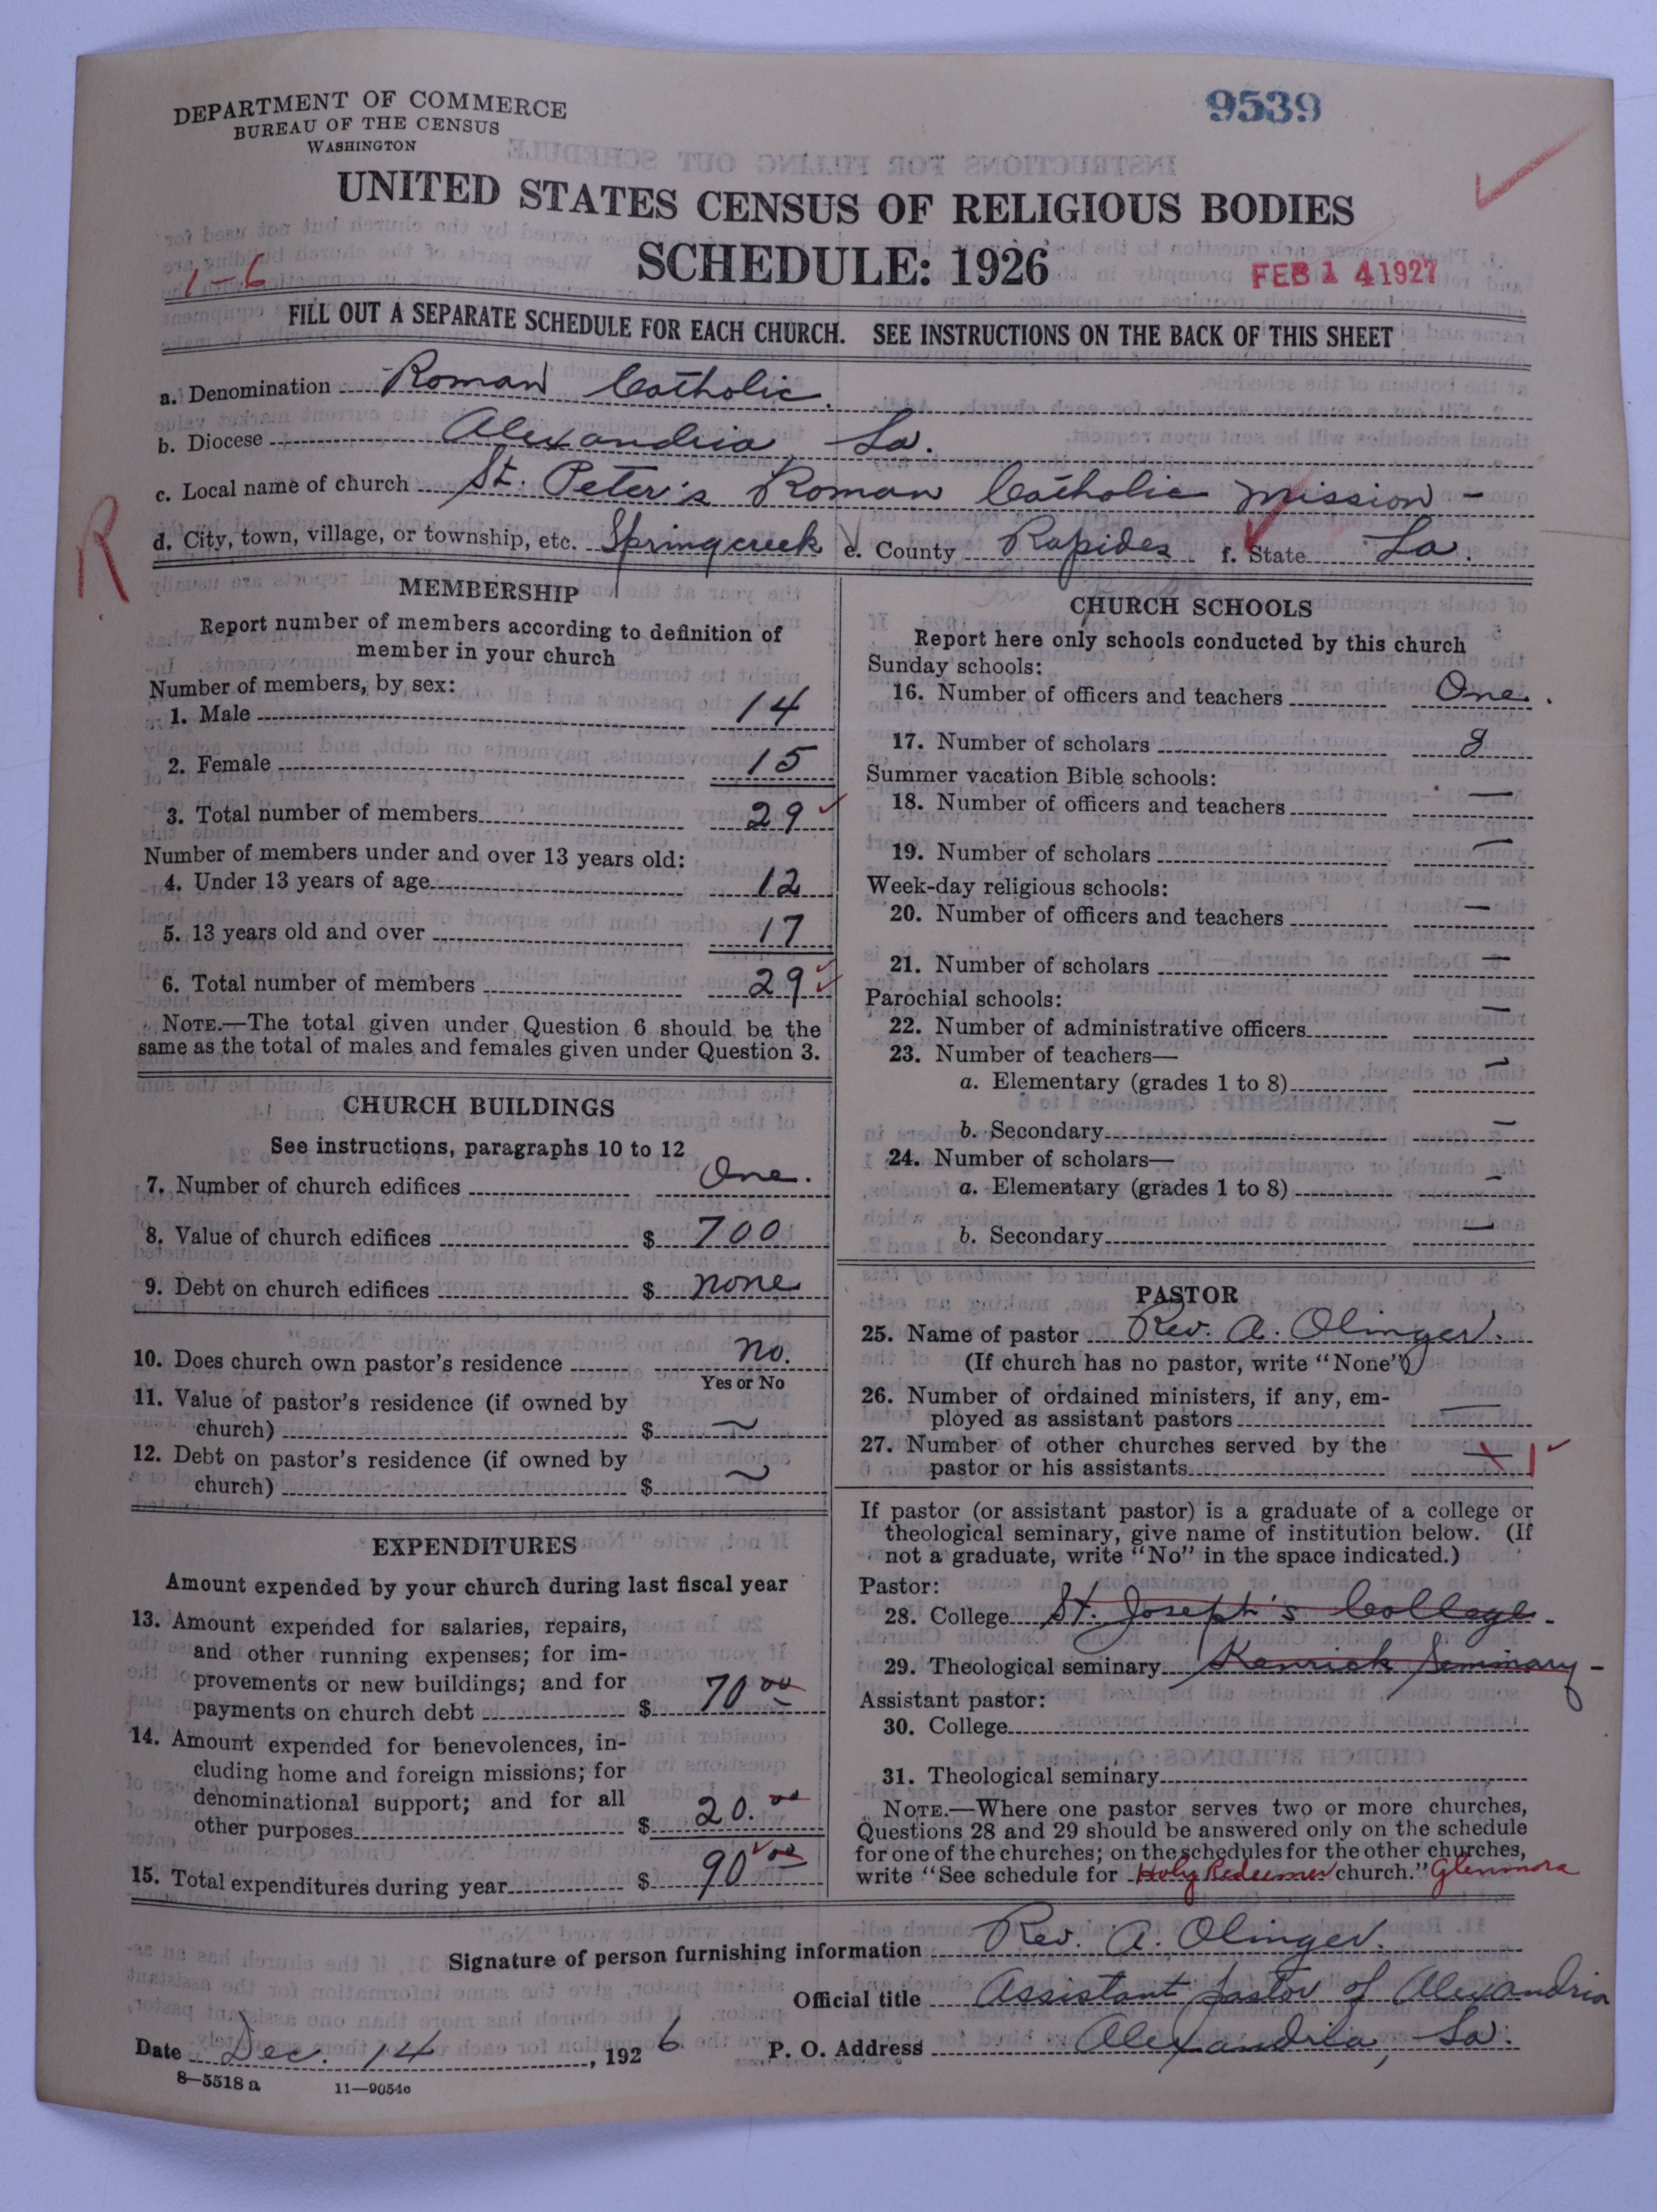 DEPARTMENT OF COMMERCE
BUREAU OF THE CENSUS
WASHINGTON
9539
UNITED STATES CENSUS OF RELIGIOUS BODIES
SCHEDULE: 1926
1-6
FEB 14 1927
FILL OUT A SEPARATE SCHEDULE FOR EACH CHURCH. SEE INSTRUCTIONS ON THE BACK OF THIS SHEET
a. Denomination Roman Catholic.
b. Diocese Alexandria, La.
c. Local name of church St. Peter's Roman Catholic Mission -
R
d. City, town, village, or township, etc. Springcreek e. County Rapides f. State La.
MEMBERSHIP
Report number of members according to definition of
member in your church
Number of members, by sex:
1. Male 14
2. Female 15
3. Total number of members 29
Number of members under and over 13 years old:
4. Under 13 years of age 12
5. 13 years old and over 17
6. Total number of members 29
NOTE.—The total given under Question 6 should be the
same as the total of males and females given under Question 3.
CHURCH BUILDINGS
See instructions, paragraphs 10 to 12
7. Number of church edifices One.
8. Value of church edifices $ 700
9. Debt on church edifices $ none
10. Does church own pastor's residence no.
Yes or No
11. Value of pastor's residence (if owned by
church) $ ~
12. Debt on pastor's residence (if owned by
church) $ ~
EXPENDITURES
Amount expended by your church during last fiscal year
13. Amount expended for salaries, repairs,
and other running expenses; for im-
provements or new buildings; and for
payments on church debt $ 70 00
14. Amount expended for benevolences, in-
cluding home and foreign missions; for
denominational support; and for all
other purposes $ 20. 00
15. Total expenditures during year $ 90 00
CHURCH SCHOOLS
Report here only schools conducted by this church
Sunday schools:
16. Number of officers and teachers One.
17. Number of scholars 8
Summer vacation Bible schools:
18. Number of officers and teachers —
19. Number of scholars —
Week-day religious schools:
20. Number of officers and teachers —
21. Number of scholars —
Parochial schools:
22. Number of administrative officers —
23. Number of teachers—
a. Elementary (grades 1 to 8) —
b. Secondary —
24. Number of scholars—
a. Elementary (grades 1 to 8) —
b. Secondary —
PASTOR
25. Name of pastor Rev. A. Olinger.
(If church has no pastor, write "None")
26. Number of ordained ministers, if any, em-
ployed as assistant pastors —
27. Number of other churches served by the
pastor or his assistants — 1
If pastor (or assistant pastor) is a graduate of a college or
theological seminary, give name of institution below. (If
not a graduate, write "No" in the space indicated.)
Pastor:
28. College St. Joseph's College -
29. Theological seminary Kenrick Seminary -
Assistant pastor:
30. College
31. Theological seminary
NOTE.—Where one pastor serves two or more churches,
Questions 28 and 29 should be answered only on the schedule
for one of the churches; on the schedules for the other churches,
write "See schedule for Holy Redeemer church." Glenmora
Signature of person furnishing information Rev. A. Olinger.
Official title Assistant pastor of Alexandria
Date Dec. 14, 1926 P. O. Address Alexandria, La.
8—5518 a 11—9054c